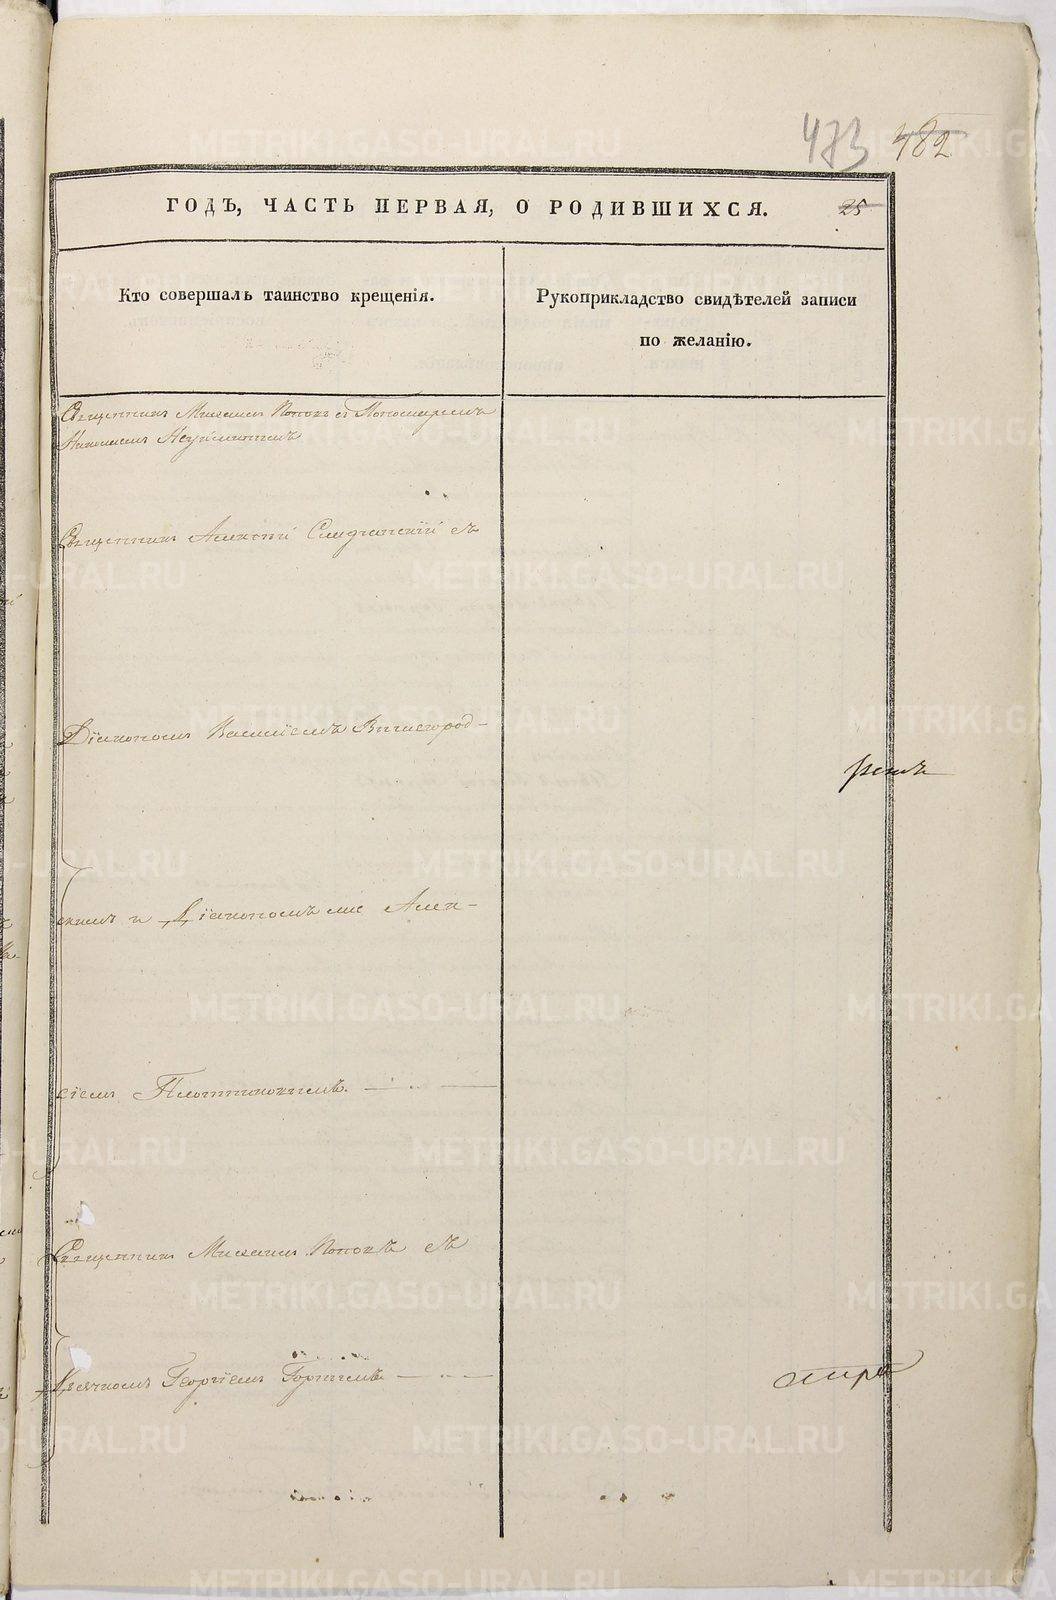 473 482
ГОДЪ, ЧАСТЬ ПЕРВАЯ, О РОДИВШИХСЯ. 25
Кто совершалъ таинство крещенія.
Рукоприкладство свидѣтелей записи
по желанію.
Священникъ Михаилъ Поповъ съ Пономаремъ
Николаемъ Неуйминымъ
Священникъ Алексій Слудчанскій съ
Діакономъ Василіемъ Вышегород-
скимъ и Діакономъ же Алек-
сіемъ Плотниковымъ.
Священникъ Михаилъ Поповъ съ
Дьячкомъ Георгіемъ Горнымъ
METRIKI.GASO-URAL.RU